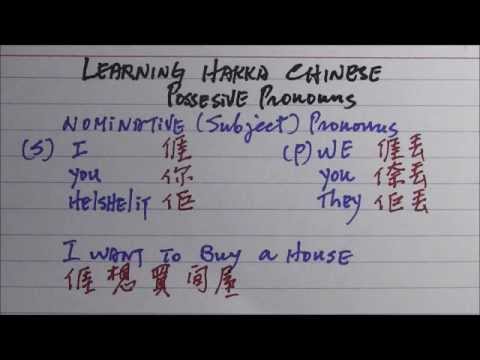 LEARNING HAKKA CHINESE
Possesive Pronouns
NOMINATIVE (Subject) Pronouns
(S) I 𠊎 (P) WE 𠊎丟
you 你 you 你丟
He/she/it 佢 They 佢丟
I WANT TO Buy a HOUSE
𠊎想買間屋